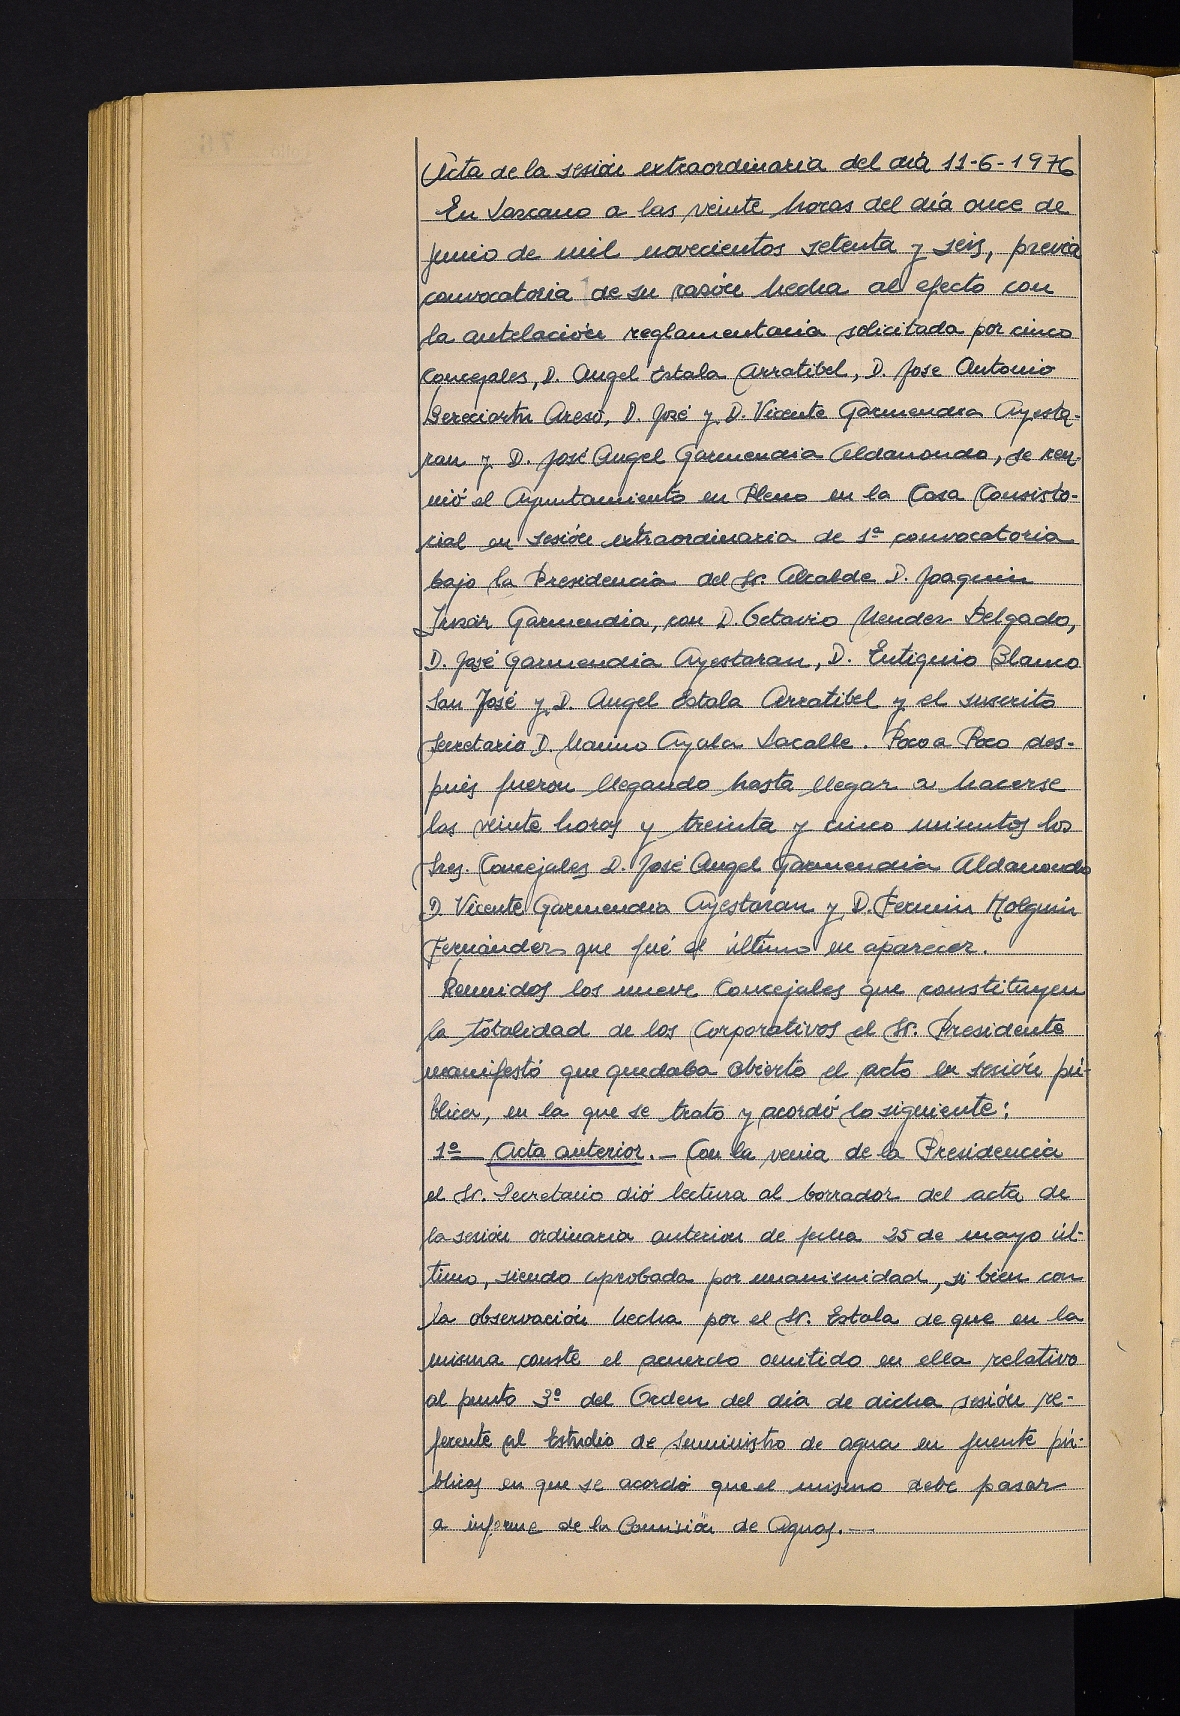 Acta de la sesión extraordinaria del día 11-6-1976
En Lazcano a las veinte horas del día once de
Junio de mil novecientos setenta y seis, previa
convocatoria de su razón hecha al efecto con
la antelación reglamentaria solicitada por cinco
Concejales, D. Angel Estala Arratibel, D. Jose Antonio
Bereciartu Areso, D. José y D. Vicente Garmendia Ayesta-
ran y D. José Angel Garmendia Aldanondo, se reu-
nió el Ayuntamiento en Pleno en la Casa Consisto-
rial en sesión extraordinaria de 1ª convocatoria
bajo la Presidencia del Sr. Alcalde D. Joaquin
Inza Garmendia, con D. Octavio Mendez Delgado,
D. José Garmendia Ayestaran, D. Eutiquio Blanco
San José y D. Angel Estala Arratibel y el suscrito
Secretario D. Marino Ayala Lacalle. Poco a Poco des-
pués fueron llegando hasta llegar a hacerse
las veinte horas y treinta y cinco minutos los
Sres. Concejales D. José Angel Garmendia Aldanondo
D. Vicente Garmendia Ayestaran y D. Fermin Holguin
Fernández que fué el último en aparecer.
Reunidos los nueve Concejales que constituyen
la totalidad de los Corporativos el Sr. Presidente
manifestó que quedaba abierto el acto en sesión pú-
blica, en la que se trato y acordó lo siguiente:
1º Acta anterior. - Con la venia de la Presidencia
el Sr. Secretario dió lectura al borrador del acta de
la sesión ordinaria anterior de fecha 25 de mayo úl-
timo, siendo aprobada por unanimidad, si bien con
la observación hecha por el Sr. Estala de que en la
misma conste el acuerdo omitido en ella relativo
al punto 3º del Orden del día de dicha sesión re-
ferente al Estudio de Suministro de agua en fuente pú-
blicas en que se acordó que el mismo debe pasar
a informe de la Comisión de Aguas. -